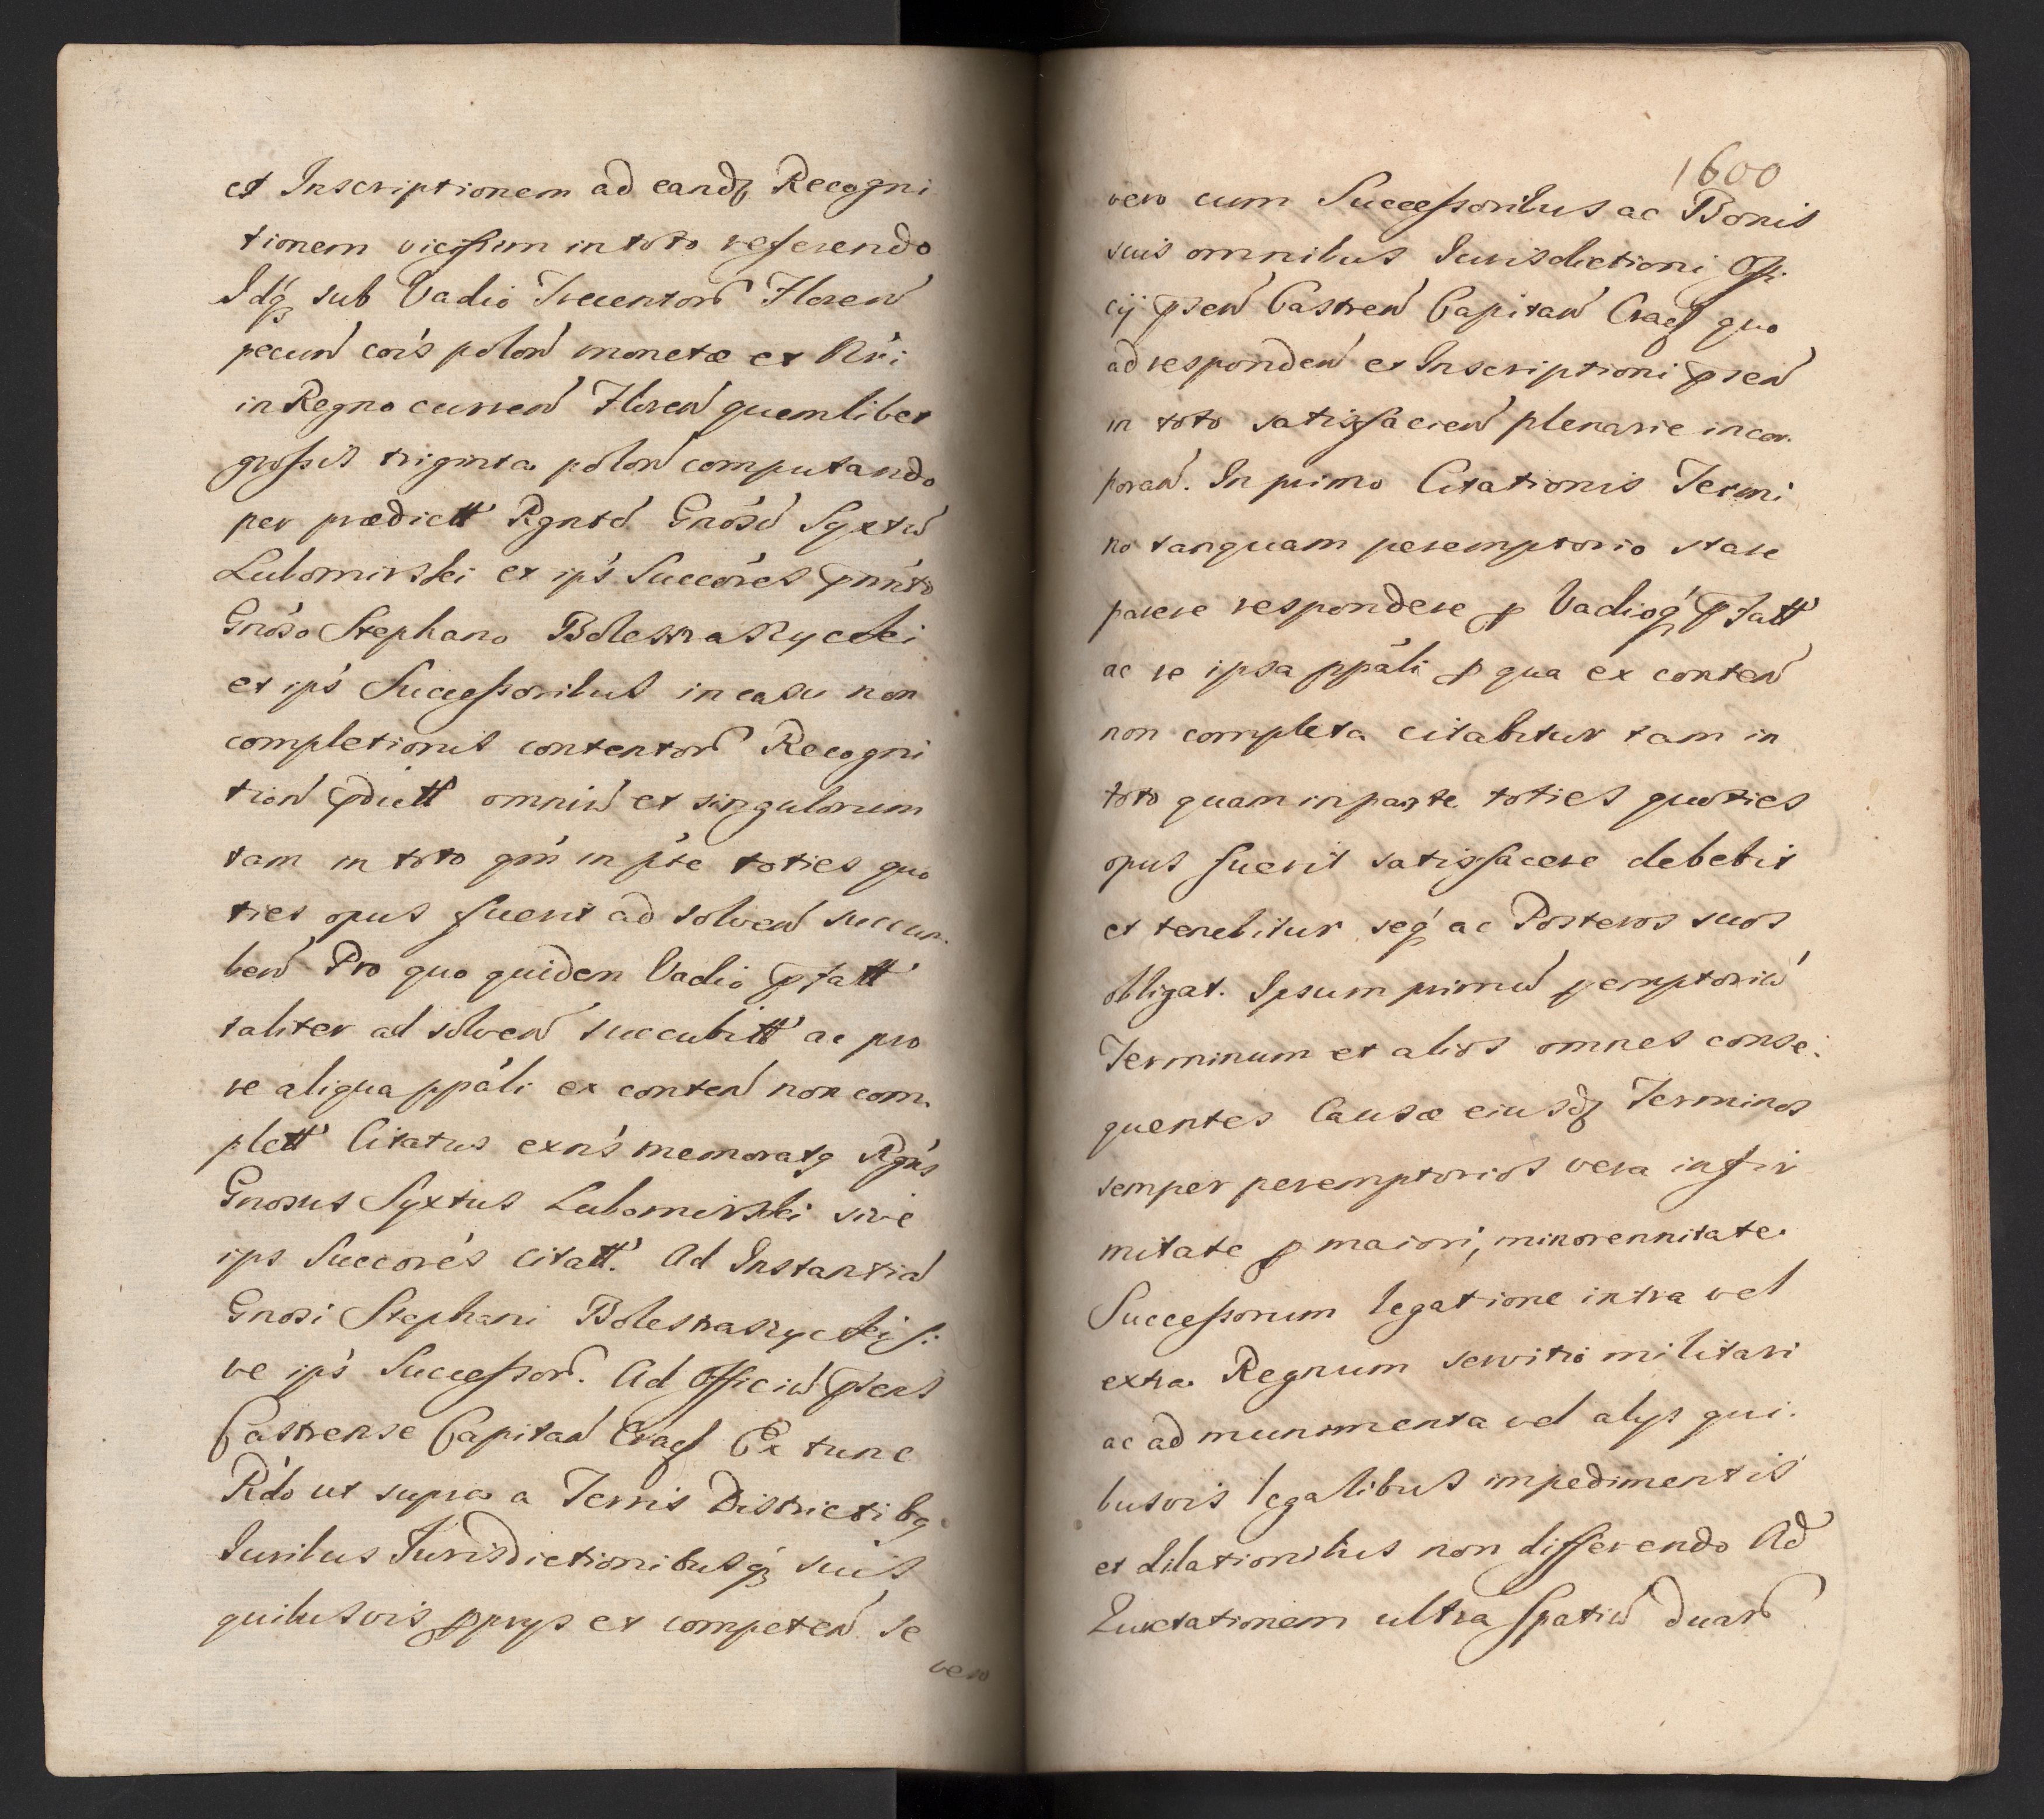 et Inscriptionem ad eandꝫ Recogni
tionem vicissim in toto referendo
Idq́ꝫ sub Vadio Trecentorꝫ Floren̄
pecun̄ cois polon̄ monetæ et Nri
in Regno curren̄ Floren̄ quemlibet
grossis triginta polon̄ computando
per prædictt Rgntd Gnosū Syxtū
Lubomirski et ips Succores pnnto
Gnoso Stephano Bolestraszycki
et ips Successoribus in casu non
completionis contentorꝫ Recogni
tion̄ pdictt omniū et singulorum
tam in toto qm in pte toties quo
ties opus fuerit ad solven̄ succum-
ben̄ Pro quo quidem Vadio pfatt
taliter ad solven̄ succubitt ac pro
re aliqua ppali ex conten̄ non com-
plett Citatus exns memoratꝯ Rgns
Gnosus Syxtus Lubomirski sive
ips Succores citatt. Ad Instantiā
Gnosi Stephani Bolestraszycki si-
ve ips Successorꝫ. Ad Officiū psens
Castrense Capitan̄ Cracꝭ Ex tunc
Rdo ut supra a Terris Districtibꝯ
Iuribus Iurisdictionibusq́ꝫ suis
quibusvis pprys et competen̄ se
vero
1600
vero cum Successoribus ac Bonis
suis omnibus Iurisdictioni Offi-
cij psen̄ Castren̄ Capitan̄ Cracꝭ quo
ad responden̄ et Inscriptioni psen̄
in toto satisfacien̄ plenarie incor-
poran̄. In primo Citationis Termi
no tanquam peremptorio stare
parere respondere ꝓ Vadioq́ꝫ pfatt
ac re ipsa ppali ꝓ qua ex conten̄
non completa citabitur tam in
toto quam in parte toties quoties
opus fuerit satisfacere debebit
et tenebitur seq́ꝫ ac Posteros suos
obligat. Ipsum primū pemptoriū
Terminum et alios omnes conse-
quentes Causæ eiusdꝫ Terminos
semper peremptorios vera infir
mitate ꝓ maiori, minorennitate
Successorum legatione intra vel
extra Regnum servitio militari
ac ad munimenta vel alys qui-
busvis legalibus impedimentis
et dilationibus non differendo Ad
Luctationem ultra spatiū duarꝫ